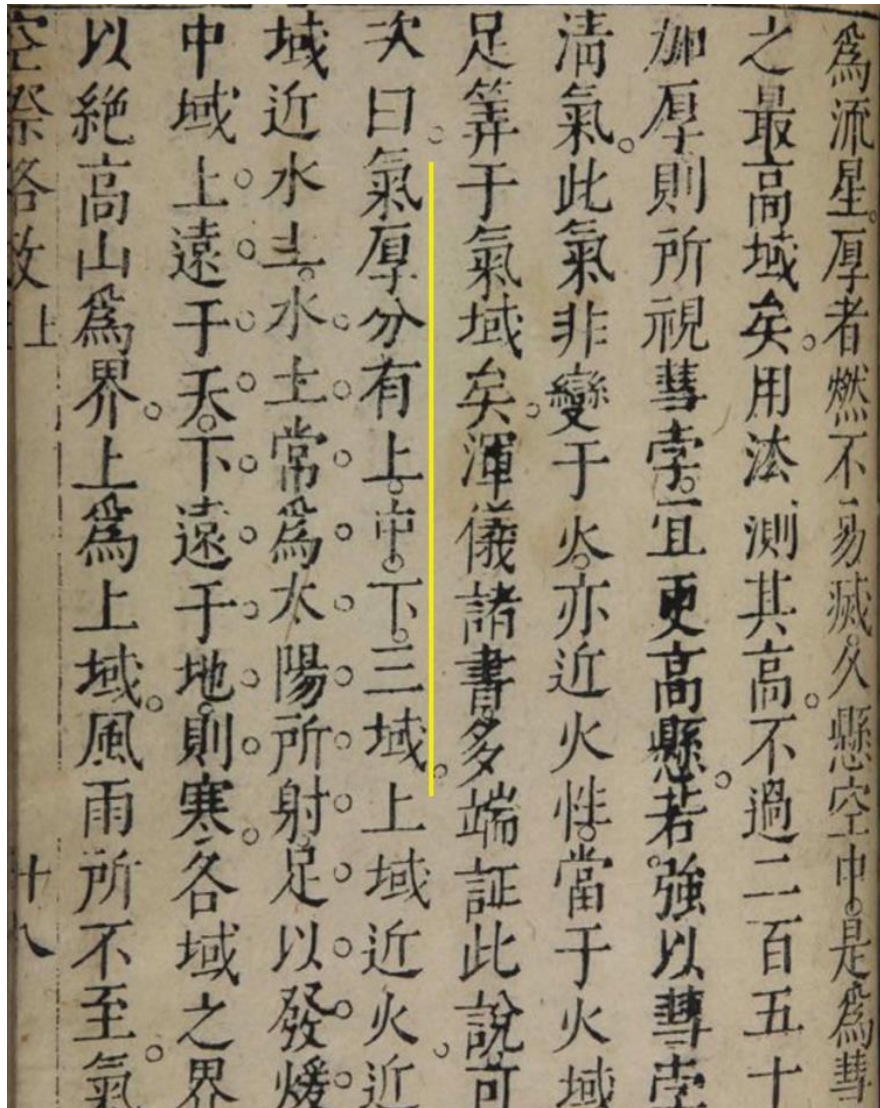 爲流星。厚者燃不易滅。久懸空中。是爲彗
之最高域矣。用法測其高。不過二百五十
加厚則所視彗孛。宜更高懸。若強以彗孛
淸氣。此氣非變于火。亦近火性。當于火域
足筭于氣域矣。渾儀諸書。多端証此說可
次曰。氣厚分有上。中。下。三域。上域近火。近
域近水土。水土常爲太陽所射。足以發煖
中域上遠于天。下遠于地。則寒。各域之界
以絕高山爲界。上爲上域。風雨所不至。氣
空際格致 上
十八